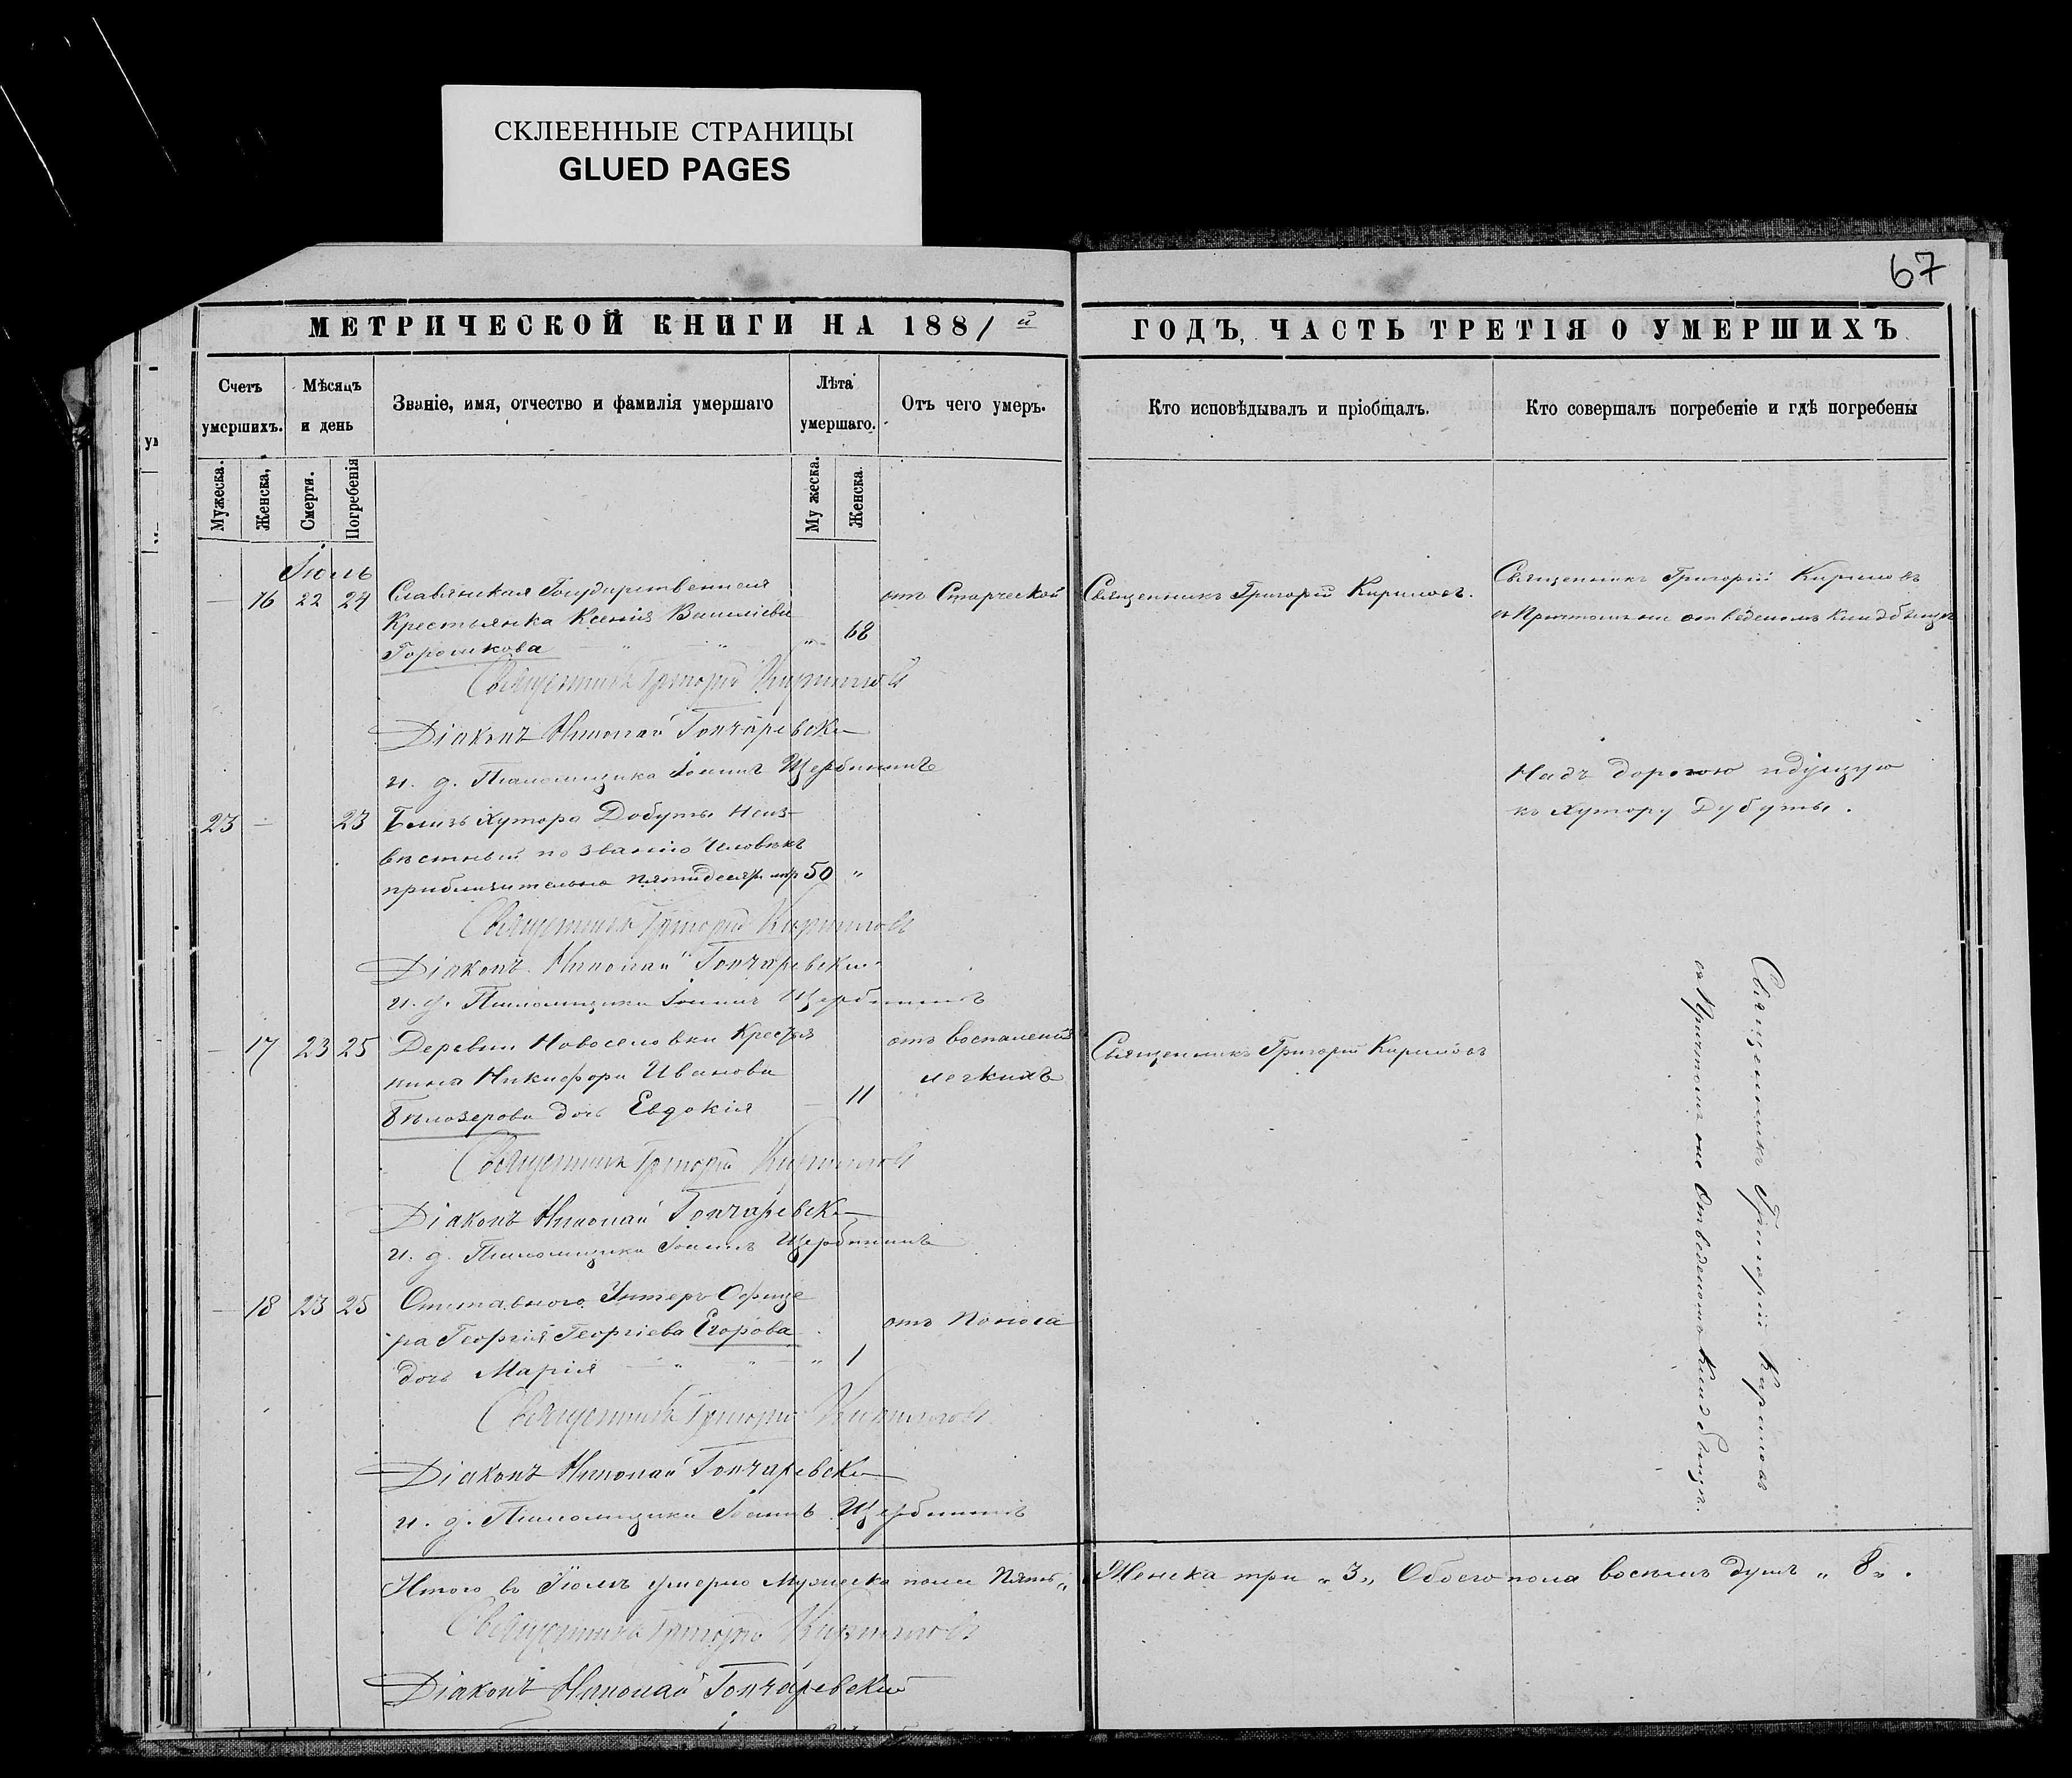 СКЛЕЕННЫЕ СТРАНИЦЫ
GLUED PAGES
67
МЕТРИЧЕСКОЙ КНИГИ НА 1881й
ГОДЪ, ЧАСТЬ ТРЕТІЯ О УМЕРШИХЪ
Счетъ умершихъ.
Мѣсяцъ и день
Званіе, имя, отчество и фамилія умершаго
Лѣта умершаго.
Отъ чего умеръ.
Кто исповѣдывалъ и пріобщалъ.
Кто совершалъ погребеніе и гдѣ погребены
Мужеска.
Женска,
Смерти.
Погребенія
Му жеска.
Женска
Іюль
— 16 22 24
Славянская Государственная
Крестьянка Ксенія Василіева
Горошкова
„ 68
отъ Старческой
Священникъ Григорій Кириловъ.
Священникъ Григорій Кириловъ
съ Причтомъ на отведеномъ кладбищѣ
Священникъ Григорій Кириловъ
Діаконъ Николай Гончаревскій
и. д. Псаломщика Іоаннъ Щербининъ
23 — 23
Близь Хутора Добуты неиз-
вѣстный по званію человѣкъ
приблизительно пятидесяти 50 „
Надъ дорогою идущую
къ Хутору Дубуты.
Священникъ Григорій Кириловъ
Діаконъ Николай Гончаревскій
и. д. Псаломщика Іоаннъ Щербининъ
— 17 23 25
Деревни Новоселовки Крестья
нина Никифора Иванова
Бѣлозерова дочь Евдокія
— 11
отъ воспаленія
легкихъ
Священникъ Григорій Кириловъ
Священникъ Григорій Кириловъ
съ Причтомъ на Отведеномъ Кладбищѣ.
Священникъ Григорій Кириловъ
Діаконъ Николай Гончаревскій
и. д. Псаломщика Іоаннъ Щербининъ
— 18 23 25
Отставного Унтеръ Офице
ра Георгія Георгіева Егорова
дочь Марія
„ 1
отъ Поноса
Священникъ Григорій Кириловъ
Діаконъ Николай Гончаревскій
и. д. Псаломщика Іоаннъ Щербининъ
Итого въ Іюлѣ умерло Мужеска пола Пять „ Женска три „ 3 „ Обоего пола восемь душъ „ 8 „ .
Священникъ Григорій Кириловъ
Діаконъ Николай Гончаревскій